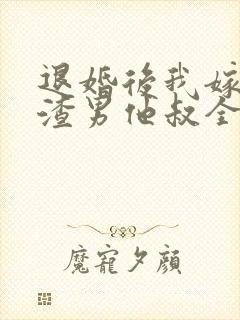 退婚後我嫁
渣男他叔全
魔寵夕顏